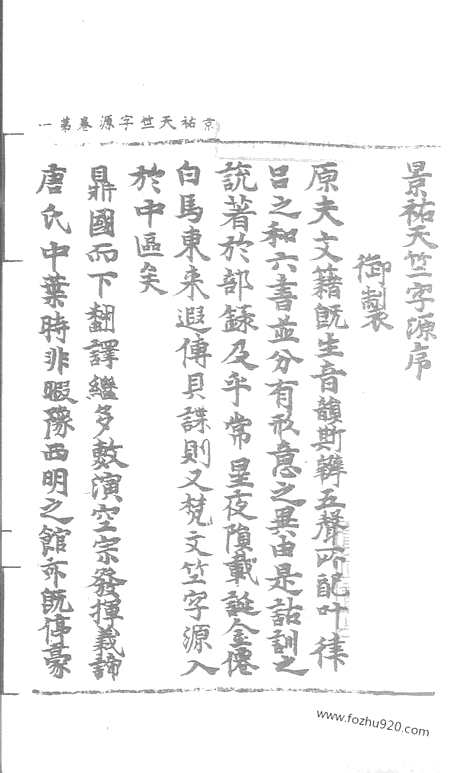 景祐天竺字源卷第一
景祐天竺字源序
御製
原夫文籍旣生音韻斯辯五聲所配叶律
呂之和六書並分有形意之異由是詁訓之
說著於部錄及乎常星夜隕載誕金僊
白馬東来遐傳貝諜則又梵文竺字源入
於中區矣
鼎國而下翻譯繼多敷演空宗發揮義諦
唐氏中葉時非暇豫西明之館亦旣停纂
www.fozhu920.com